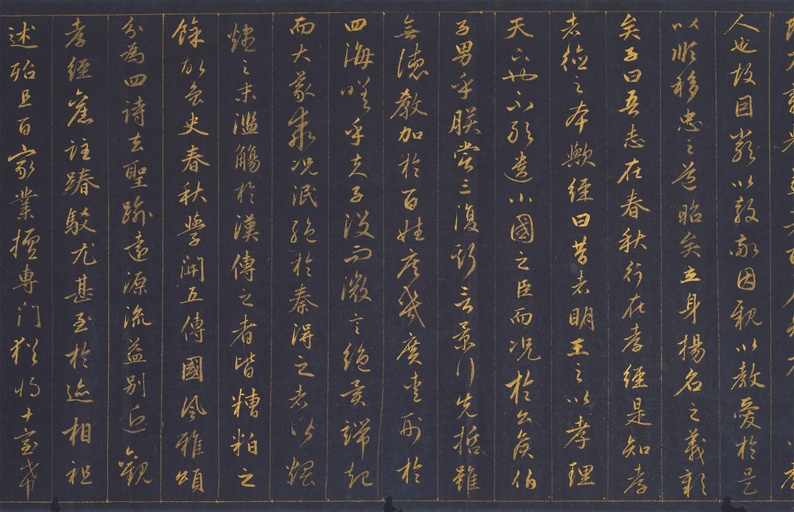 人也故因嚴以教敬因親以教愛於是
以順移忠之道昭矣立身揚名之義彰
矣子曰吾志在春秋行在孝經是知孝
者德之本歟經曰昔者明王之以孝理
天下也不敢遺小國之臣而況於公侯伯
子男乎朕嘗三復斯言景行先哲雖
無德教加於百姓庶幾廣愛刑於
四海嗟乎夫子沒而微言絕異端起
而大義乖況泯絕於秦得之者皆煨
燼之末濫觴於漢傳之者皆糟粕之
餘故魯史春秋學開五傳國風雅頌
分為四詩去聖踰遠源流益別近觀
孝經舊註踳駮尤甚至於跡相祖
述殆且百家業擅專門猶將十室希